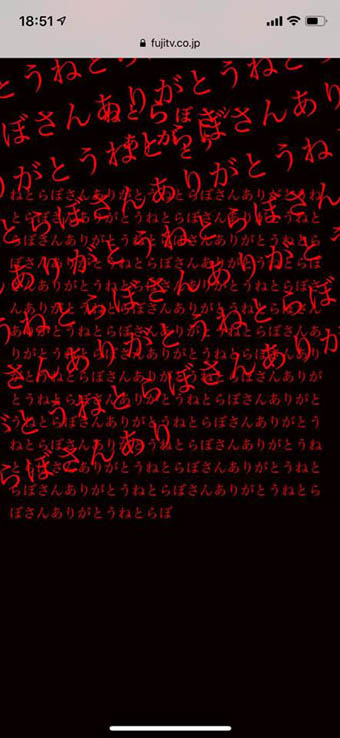 18:51
fujitv.co.jp
とうねとら
ぼさんありがとう
りがとうねとらぼさんあり
とらぼさんありがとうね
んありがとうねとらぼさん
ありがとうねとらぼ
さんありがとうねとらぼ
とうねとらぼさんありが
らぼさんあり
ねとらぼさんありがとうねとらぼさんありがとうね
とらぼさんありがとうねとらぼさんありがとうねと
らぼさんありがとうねとらぼさんありがとうねとら
ぼさんありがとうねとらぼさんありがとうねとらぼ
さんありがとうねとらぼさんありがとうねとらぼさ
んありがとうねとらぼさんありがとうねとらぼさん
ありがとうねとらぼさんありがとうねとらぼさんあ
りがとうねとらぼさんありがとうねとらぼさんあり
がとうねとらぼさんありがとうねとらぼさんありが
とうねとらぼさんありがとうねとらぼさんありがと
うねとらぼさんありがとうねとらぼさんありがとう
ねとらぼさんありがとうねとらぼさんありがとうね
とらぼさんありがとうねとらぼさんありがとうねと
らぼさんありがとうねとらぼさんありがとうねとら
ぼさんありがとうねとらぼ